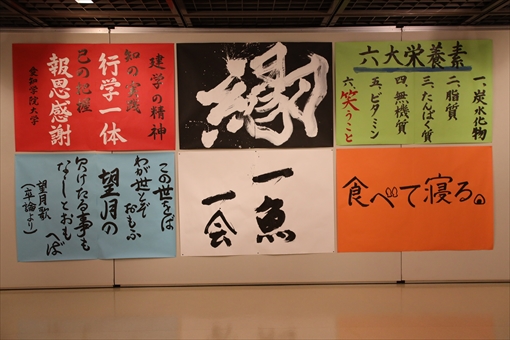 建学の精神
知の実践
行学一体
己の把握
報恩感謝
愛知学院大学
縁
六大栄養素
一、炭水化物
二、脂質
三、たんぱく質
四、無機質
五、ビタミン
六、笑うこと
この世をば
わが世とぞ
おもふ
望月の
欠けたる事も
なしとおも
へば
望月歌
一魚
一会
食べて寝る。